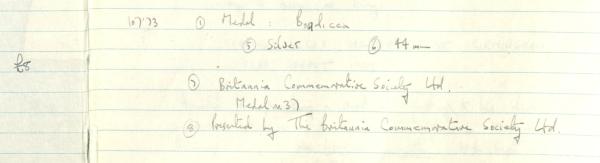 107'73 ① Medal : Boadicea
⑤ Silver ⑥ 44 mm
£8
⑦ Britannia Commemorative Society Ltd.
Medal no 37
⑧ Presented by The Britannia Commemorative Society Ltd.